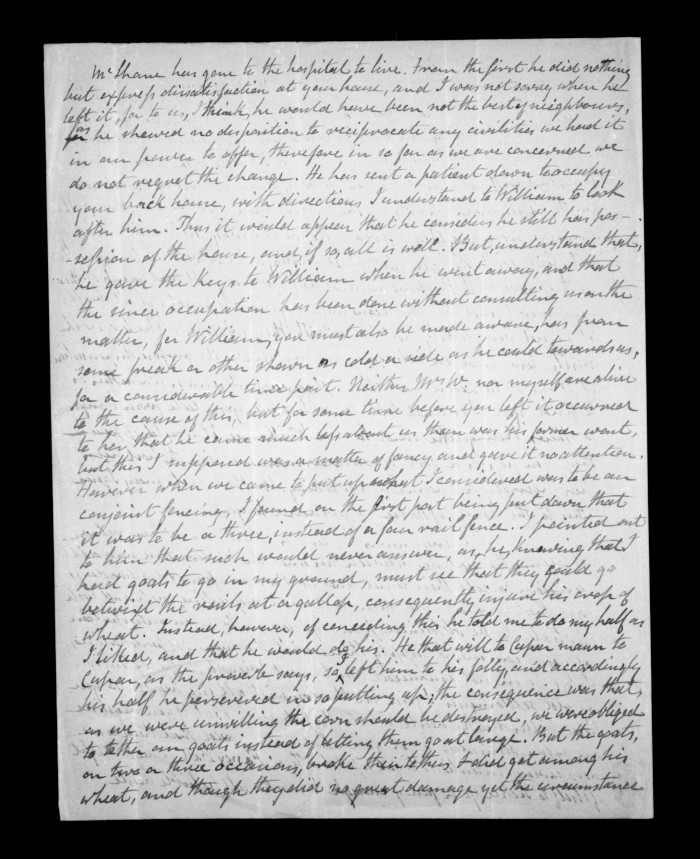 Mr Shane has gone to the hospital to live. From the first he did nothing
but express dissatisfaction at your house, and I was not sorry when he
left it, for to us, I think, he would have been not the best of neighbours,
as he shewed no disposition to reciprocate any civilities we had it
in our power to offer, therefore in so far as we are concerned we
do not regret the change. He has sent a patient down to occupy
your back house, with directions I understand to William to look
after him. Thus it would appear that he considers he still has pos-
-session of the house, and, if so, all is well. But, understand that,
he gave the Keys to William when he went away, and that
the since occupation has been done without consulting us on the
matter, for William, you must also be made aware, has from
some freak or other shewn as cold a side as he could towards us,
for a considerable time past. Neither Mrs W. nor myself are alive
to the cause of this, but for some time before you left it occurred
to her that he came much less about us than was his former wont,
but this I supposed was a matter of fancy and gave it no attention.
However when we came to put up what I considered was to be our
conjoint fencing, I found on the first part being put down that
it was to be a three, instead of a four rail fence. I pointed out
to him that such would never answer, as, he Knowing that I
had goats to go in my ground, must see that they could go
betwixt the rails at a gallop, consequently injure his crop of
wheat. Instead, however, of conceding this he told me to do my half as
I liked, and that he would do his. He that will to Cupar maun to
Cupar, as the proverb says, so I left him to his folly, and accordingly
his half he persevered in so putting up; the consequence was that,
as we were unwilling the corn should be destroyed, we were obliged
to tether our goats instead of letting them go at large. But the goats,
on two or three occasions, broke their tethers & did get among his
wheat, and though they did no great damage yet the circumstance